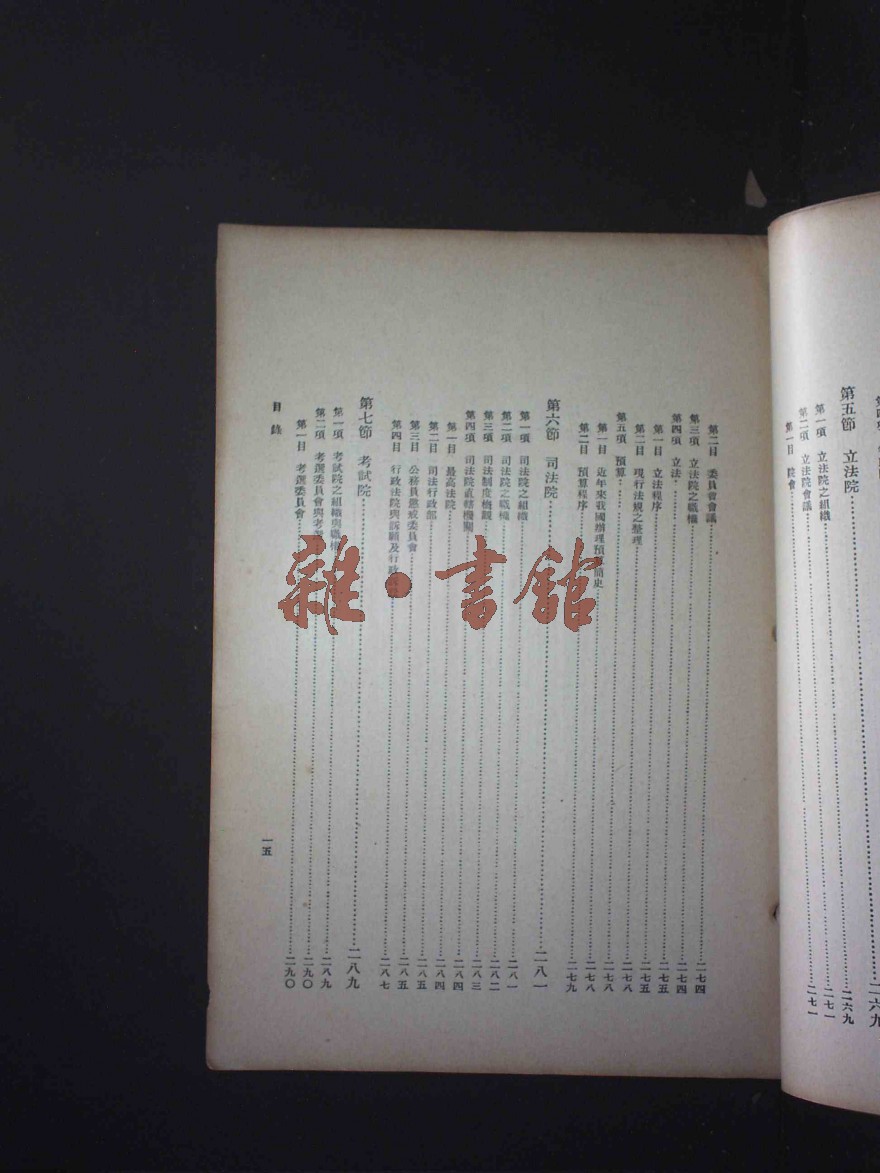 第五節 立法院……二六九
第一項 立法院之組織……二六九
第二項 立法院會議……二七一
第一目 院會……二七一
第二目 委員會會議……二七四
第三項 立法院之職權……二七四
第四項 立法……二七五
第一目 立法程序……二七五
第二目 現行法規之整理……二七八
第五項 預算……二七八
第一目 近年來我國辦理預算簡史……二七八
第二目 預算程序……二七九
第六節 司法院……二八一
第一項 司法院之組織……二八一
第二項 司法院之職權……二八二
第三項 司法制度概觀……二八三
第四項 司法院直轄機關……二八四
第一目 最高法院……二八四
第二目 司法行政部……二八五
第三目 公務員懲戒委員會……二八五
第四目 行政法院與訴願及行政……二八七
第七節 考試院……二八九
第一項 考試院之組織與職權……二八九
第二項 考選委員會與考……二九〇
第一目 考選委員會……二九〇
目錄
一五
雜·書館